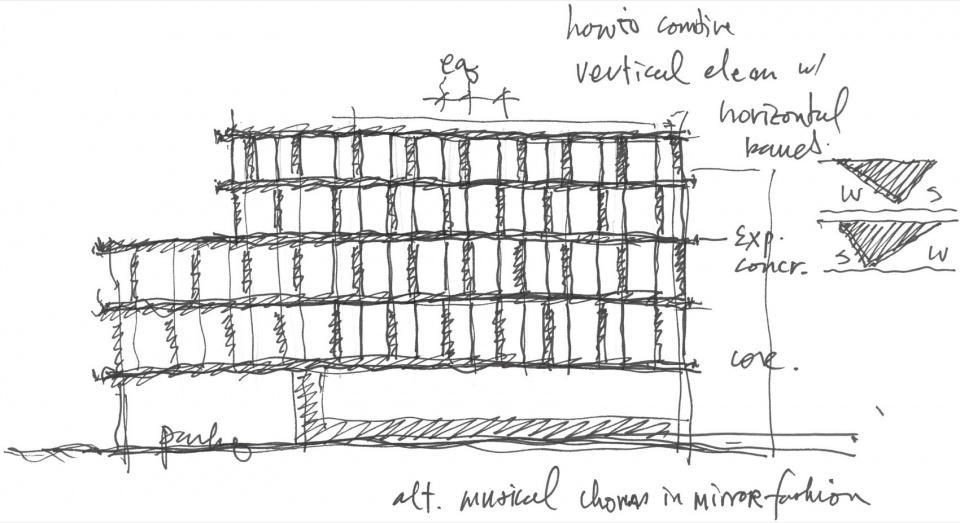 how to combine
eq
vertical elean w/
horizontal
bands.
W S
Exp.
concr.
S W
core.
parking
alt. musical chords in MIRROR fashion